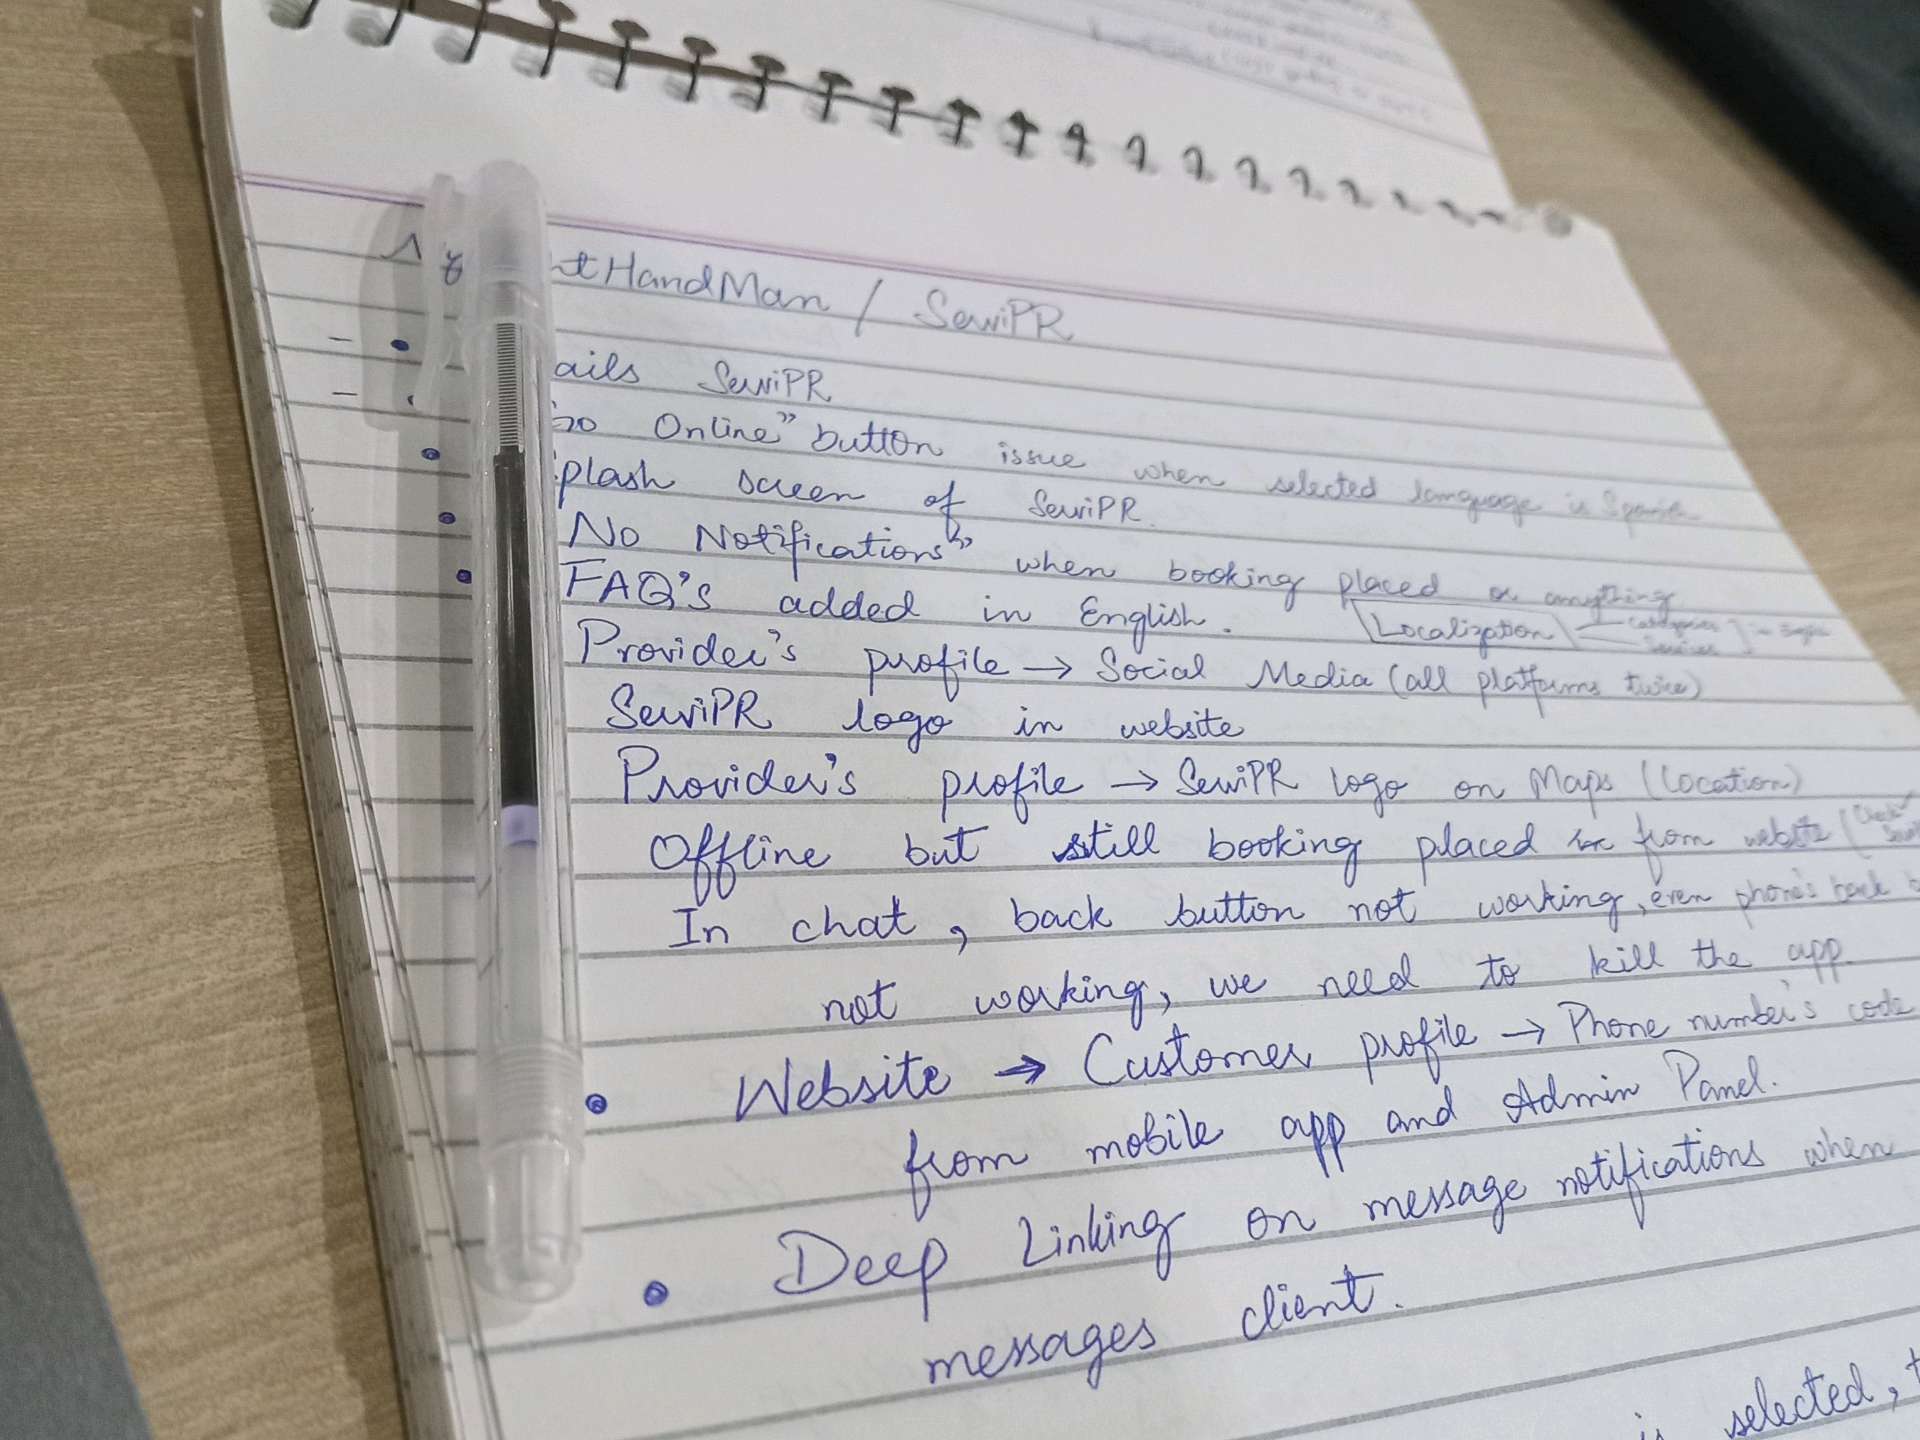 tHandMan / ServiPR
ails ServiPR
Online" button issue when selected language is
plash screen of ServiPR.
No Notifications" when booking placed or anything
FAQ's added in English. Localization
Categories
Services
Provider's profile → Social Media (all platforms twice)
ServiPR logo in website
Provider's profile → ServiPR logo on Maps (Location)
Offline but still booking placed from website (Check
In chat, back button not working, even phone's back
not working, we need to kill the app.
• Website → Customer profile → Phone number's code
from mobile app and Admin Panel.
• Deep Linking on message notifications when
messages client.
is selected,